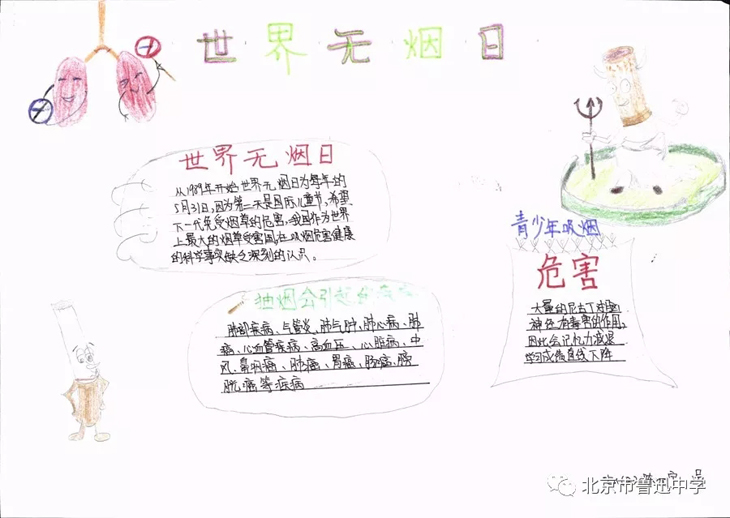 世界无烟日
世界无烟日
从1989年开始世界无烟日为每年的
5月31日,因为第二天是国际儿童节,希望
下一代免受烟草的危害,我国作为世界
上最大的烟草受害国,在吸烟危害健康
的科学事实缺乏深刻的认识。
抽烟会引起的疾病
肺部疾病、气管炎、肺气肿、肺心病、肺
癌、心血管疾病、高血压、心脏病、中
风、胃病、肺癌、胃癌、肠癌、膀
胱癌等疾病
青少年吸烟
危害
大量的尼古丁对脑
神经有毒害的作用,
因此会记忆力减退
学习成绩直线下降
北京市鲁迅中学